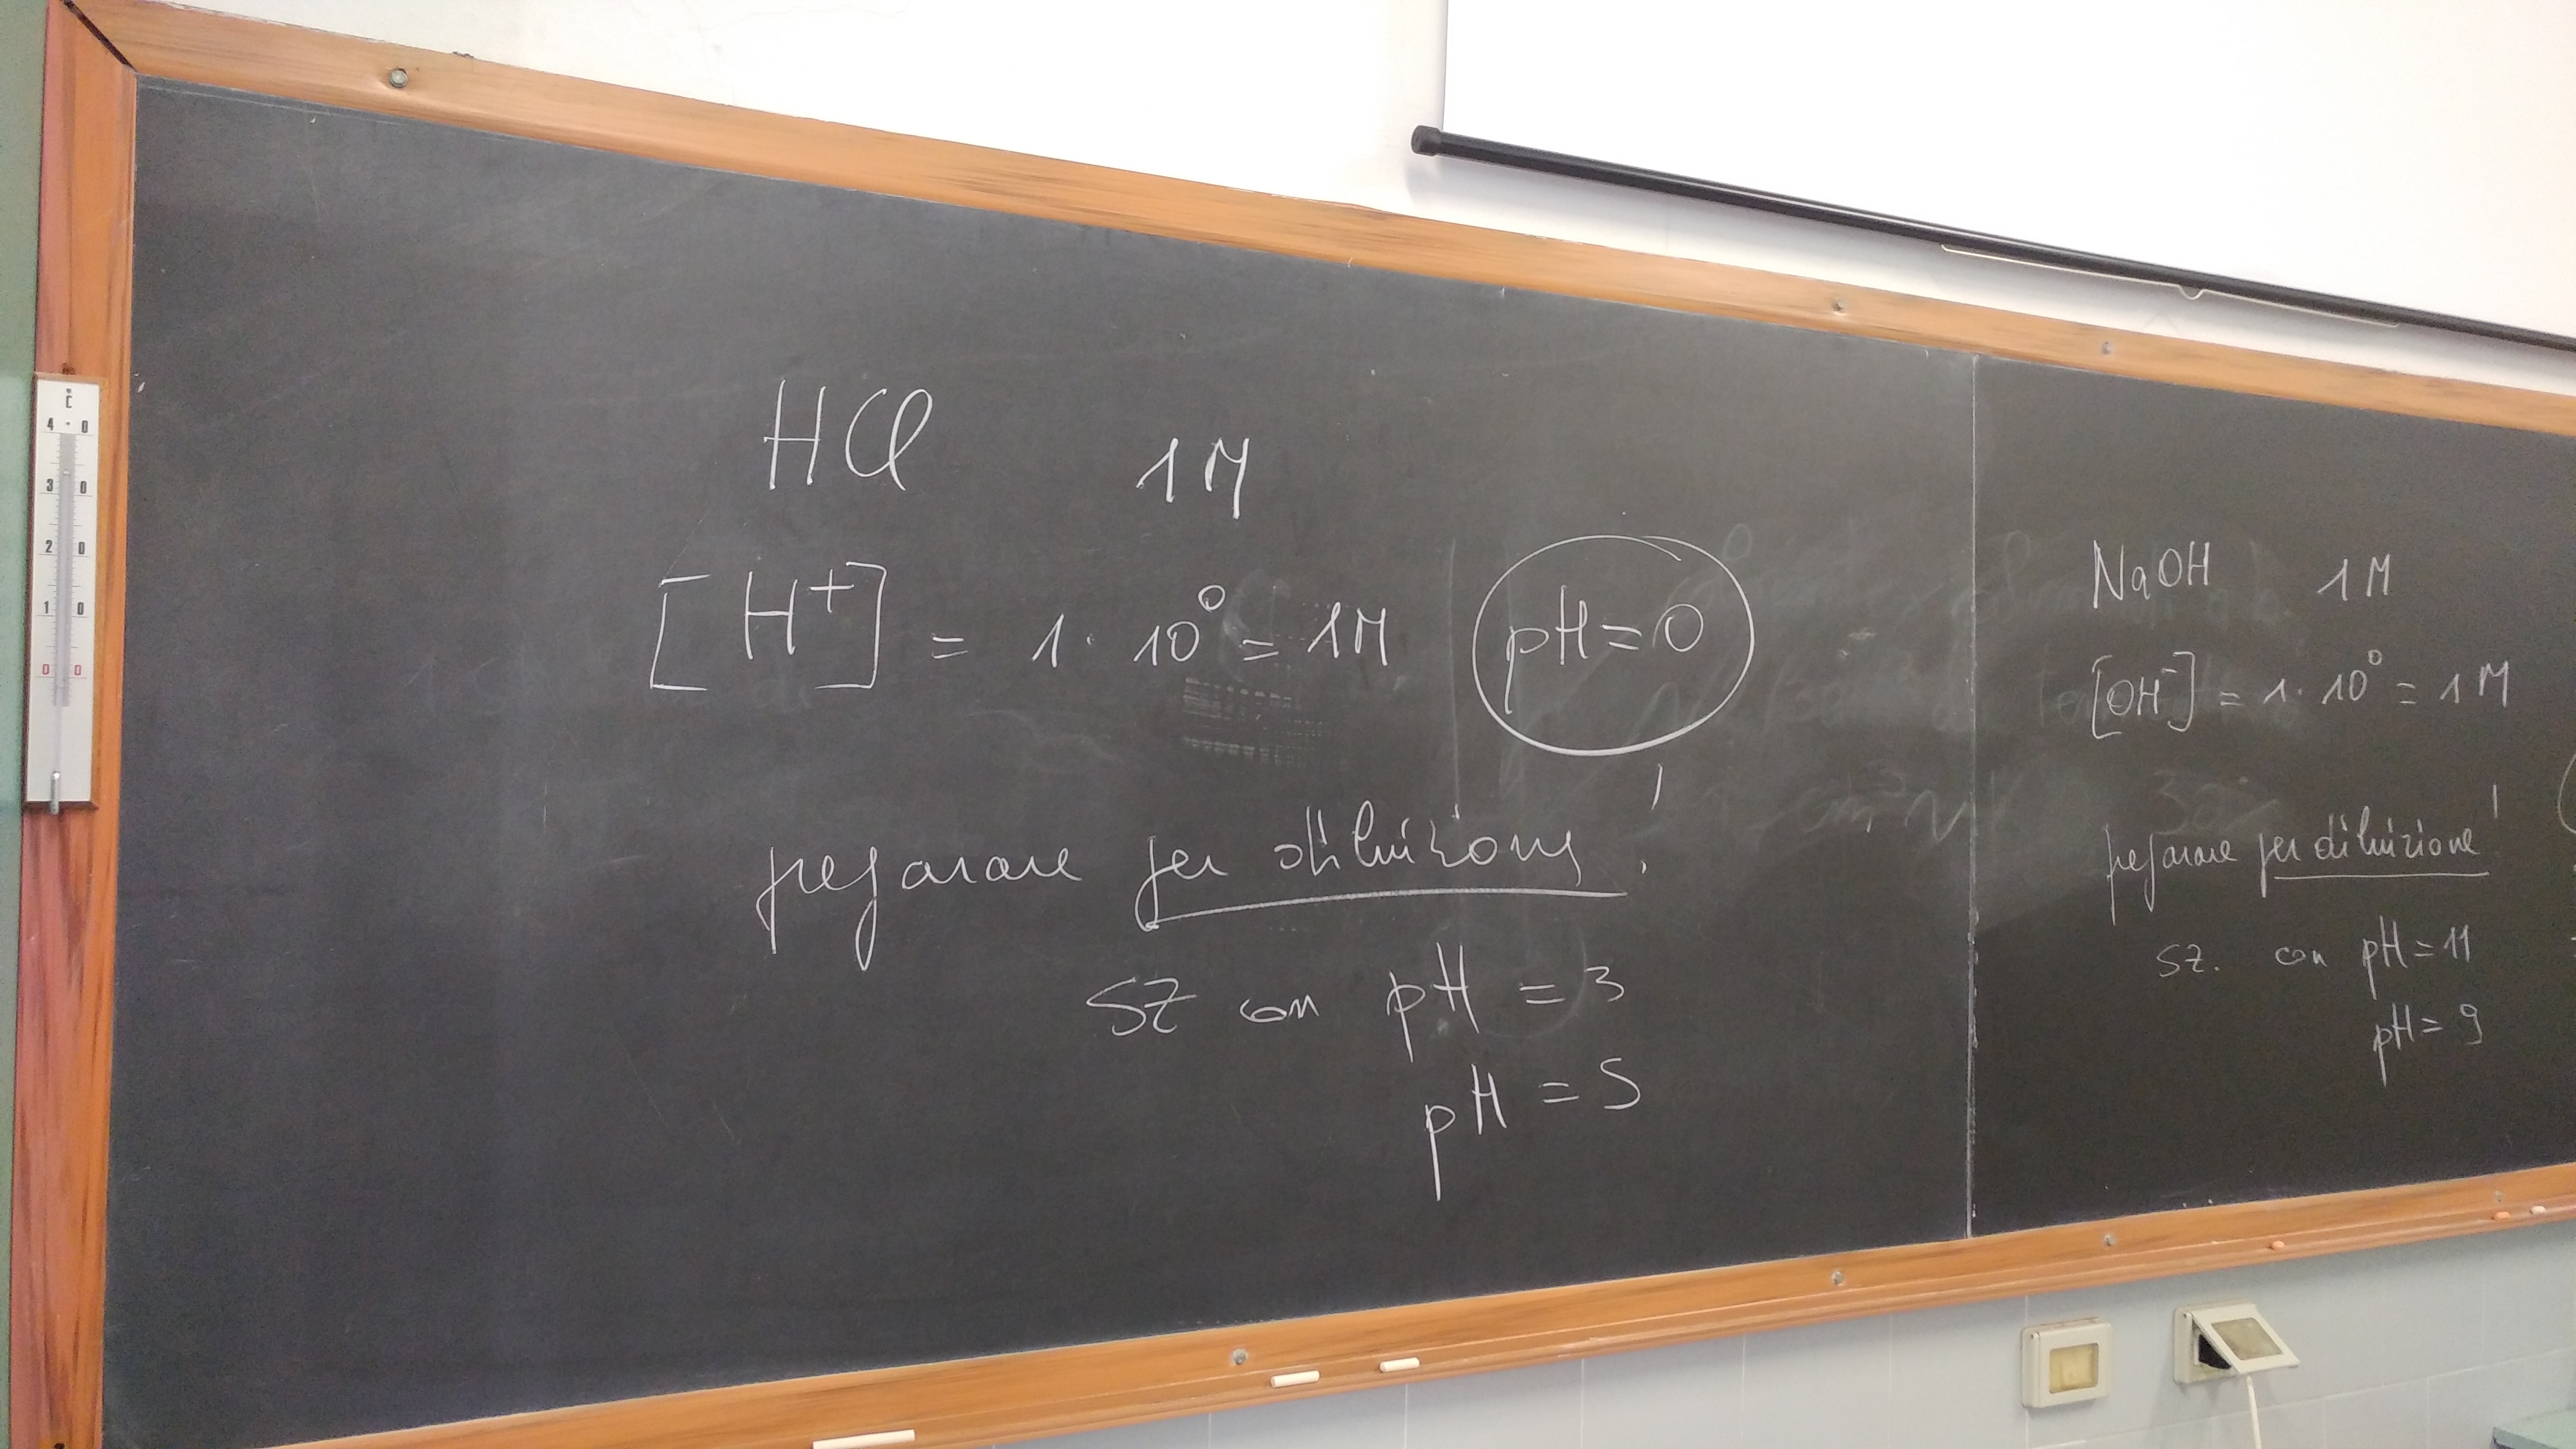 °C
4 0
3 0
2 0
1 0
0 0
HCl 1M
[H⁺] = 1 · 10⁰ = 1M pH = 0
preparare per diluizione!
SZ con pH = 3
pH = 5
NaOH 1M
[OH⁻] = 1 · 10⁰ = 1M
preparare per diluizione!
SZ. con pH = 11
pH = 9